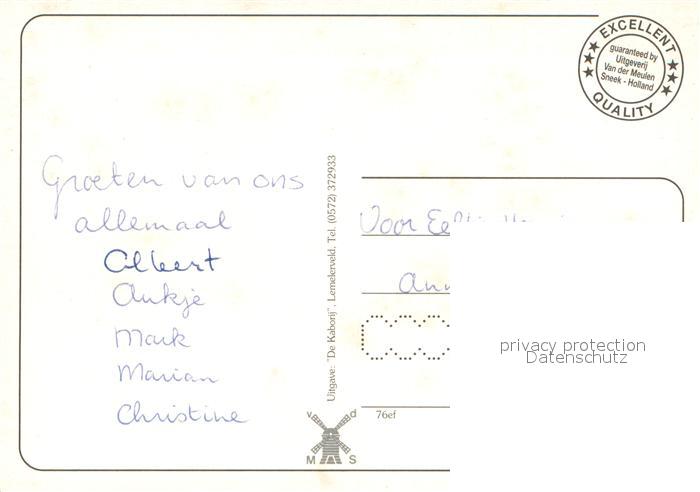 EXCELLENT
guaranteed by
Uitgeverij
Van der Meulen
Sneek - Holland
QUALITY
Groeten van ons
allemaal
Albert
Aukje
Mark
Marian
Christine
Uitgave: "De Kaborij", Lemelerveld, Tel. (0572) 372933
Voor
privacy protection
Datenschutz
76ef
v d
M S